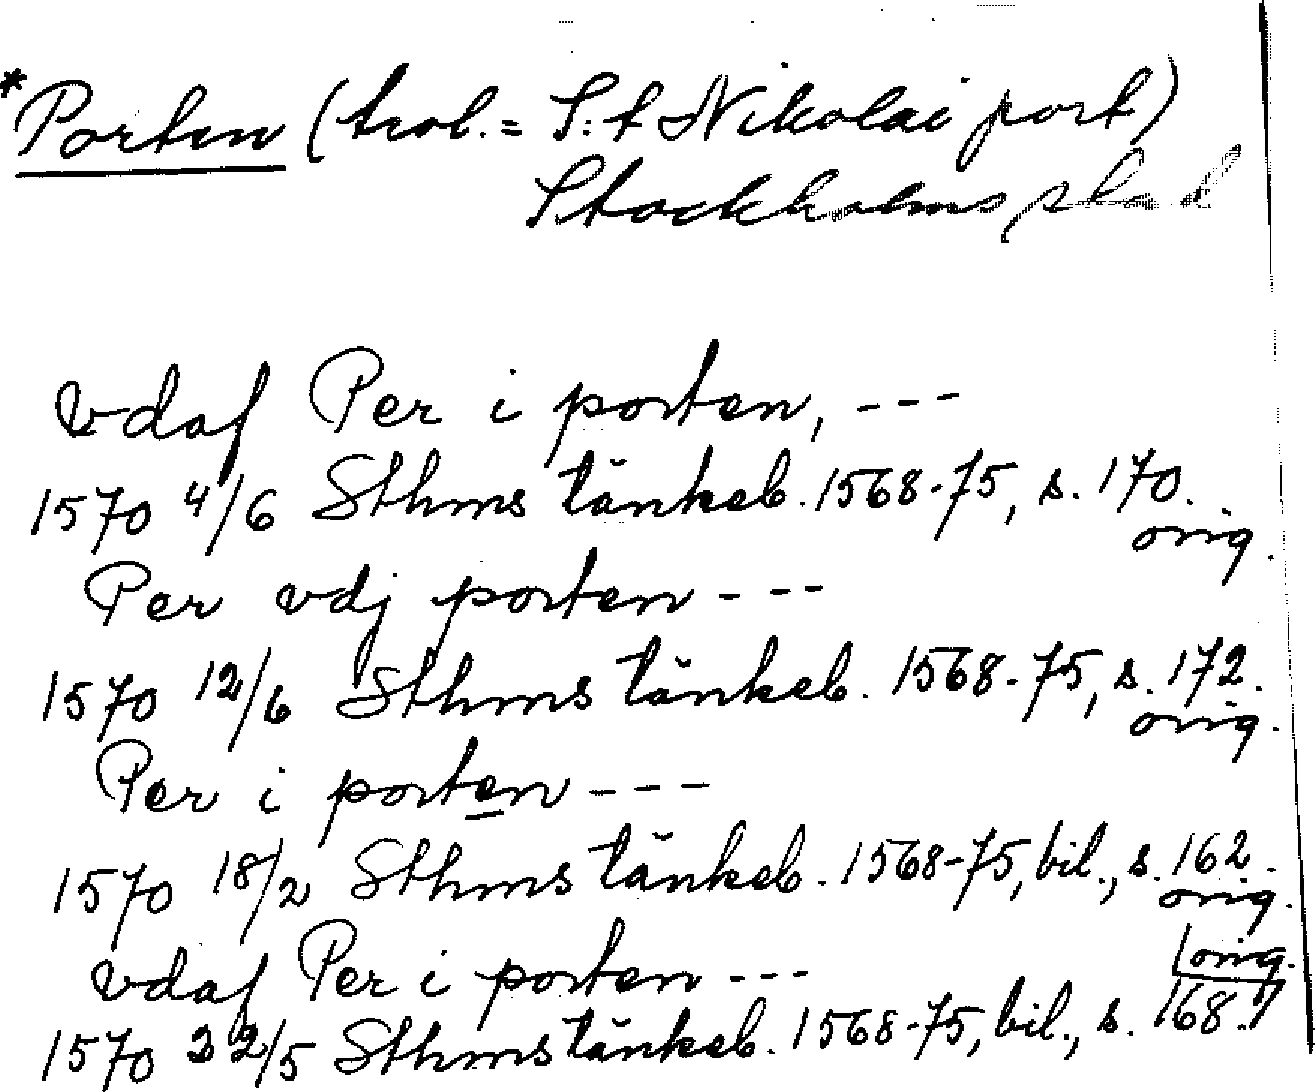 *Porten (trol. = S:t Nikolai port)
Stockholms stad
vdaf Per i porten, ---
1570 4/6 Sthms tänkeb. 1568-75, s. 170.
orig.
Per vdj porten ---
1570 12/6 Sthms tänkeb. 1568-75, s. 172.
orig.
Per i porten ---
1570 18/2 Sthms tänkeb. 1568-75, bil., s. 162.
orig.
vdaf Per i porten ---
orig.
1570 22/5 Sthms tänkeb. 1568-75, bil., s. 168.